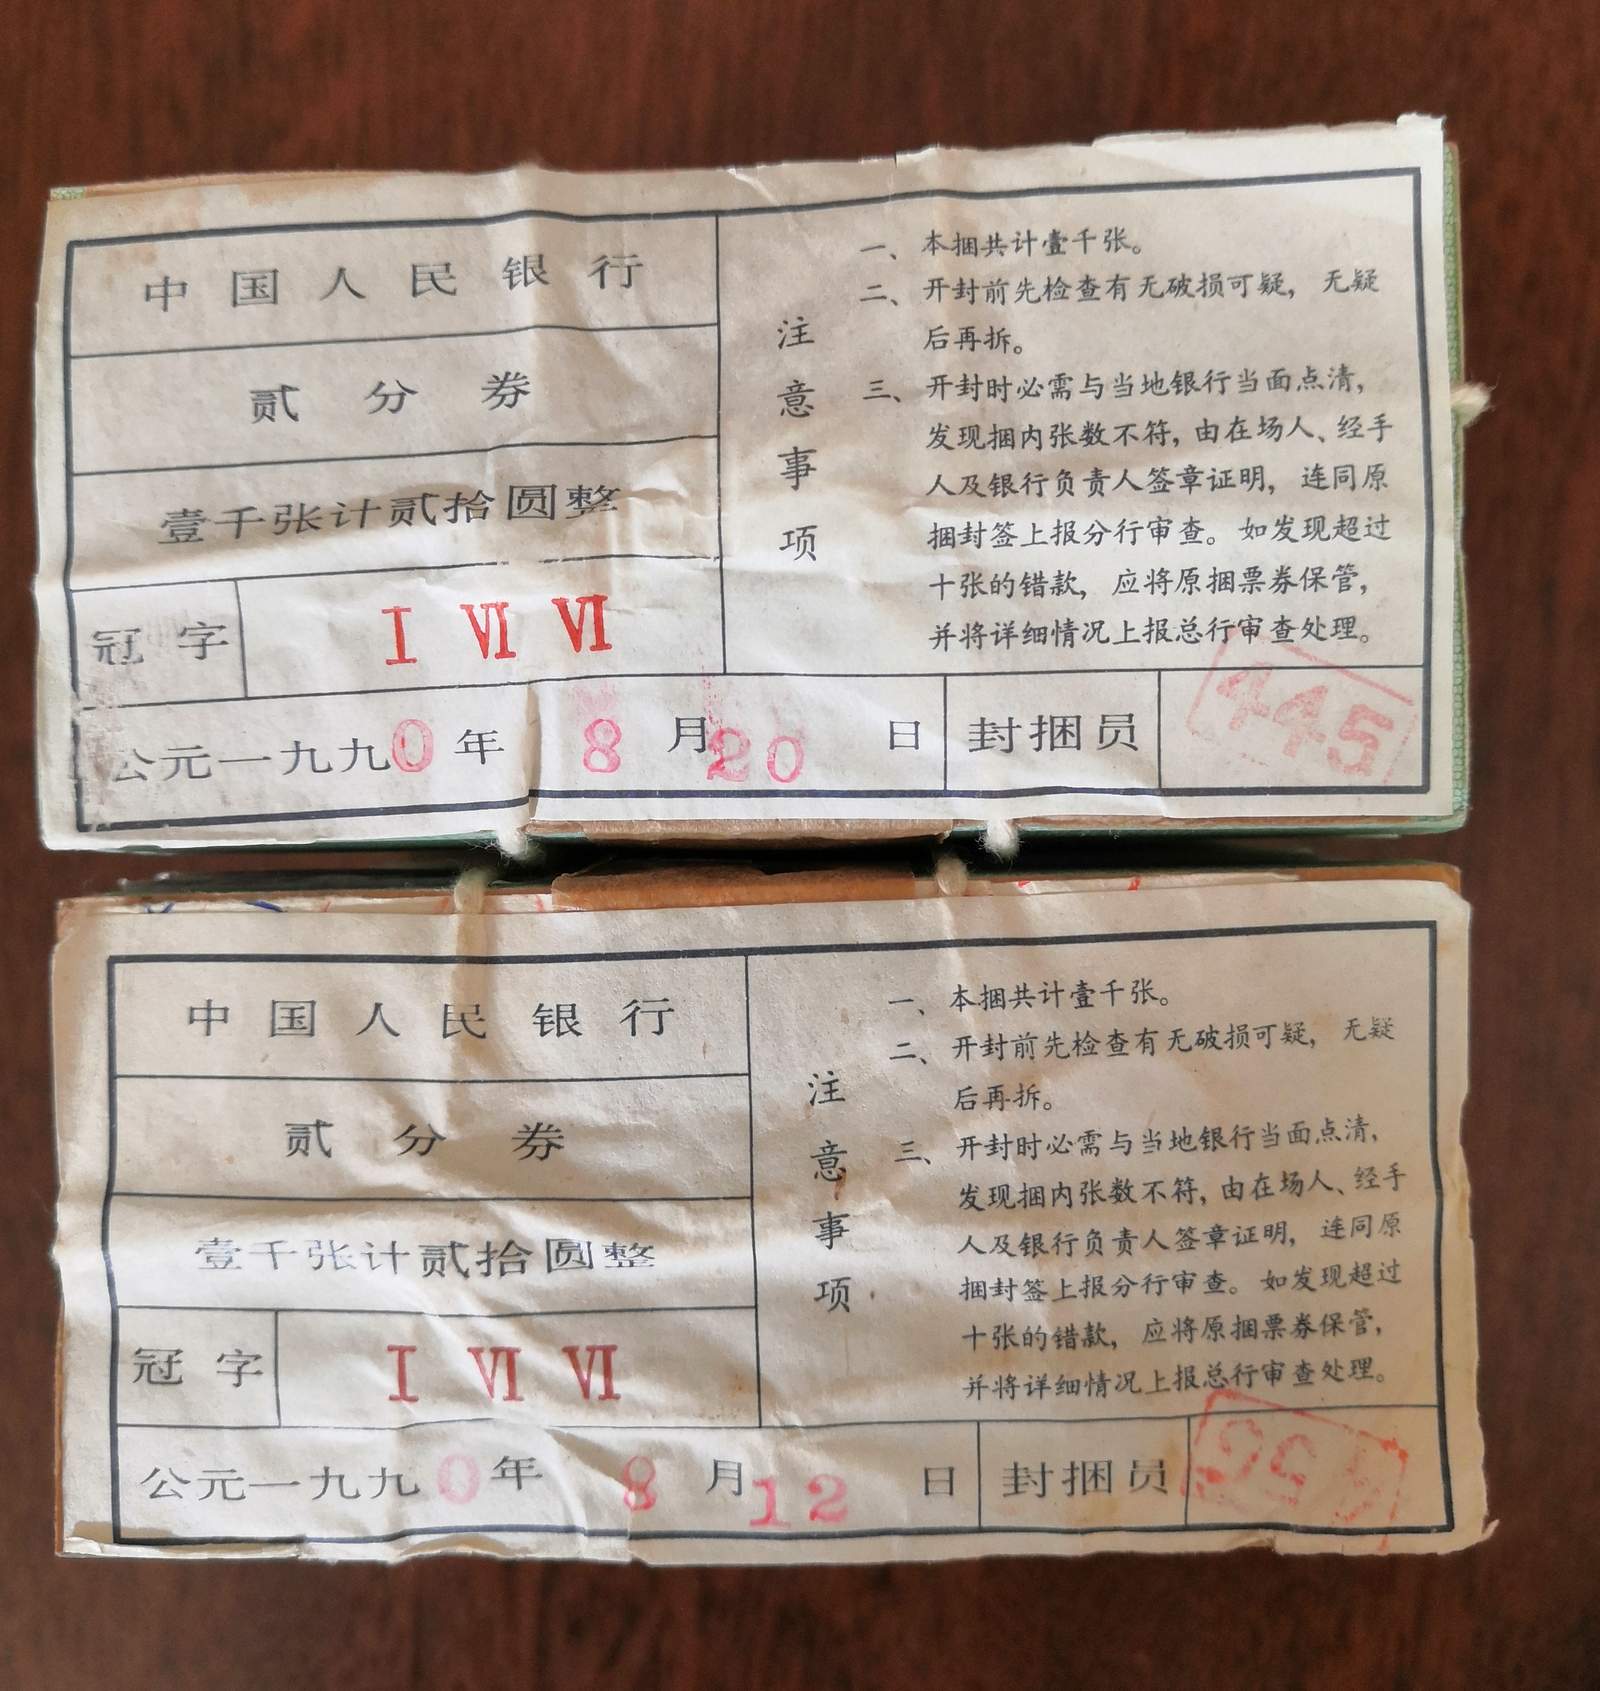 中国人民银行
贰分券
壹千张计贰拾圆整
冠字 Ⅰ Ⅵ Ⅵ
公元一九九0年 8月20日
注意事项
一、本捆共计壹千张。
二、开封前先检查有无破损可疑，无疑
后再拆。
三、开封时必需与当地银行当面点清，
发现捆内张数不符，由在场人、经手
人及银行负责人签章证明，连同原
捆封签上报分行审查。如发现超过
十张的错款，应将原捆票券保管，
并将详细情况上报总行审查处理。
封捆员 445
中国人民银行
贰分券
壹千张计贰拾圆整
冠字 Ⅰ Ⅵ Ⅵ
公元一九九0年 8月12日
注意事项
一、本捆共计壹千张。
二、开封前先检查有无破损可疑，无疑
后再拆。
三、开封时必需与当地银行当面点清，
发现捆内张数不符，由在场人、经手
人及银行负责人签章证明，连同原
捆封签上报分行审查。如发现超过
十张的错款，应将原捆票券保管，
并将详细情况上报总行审查处理。
封捆员